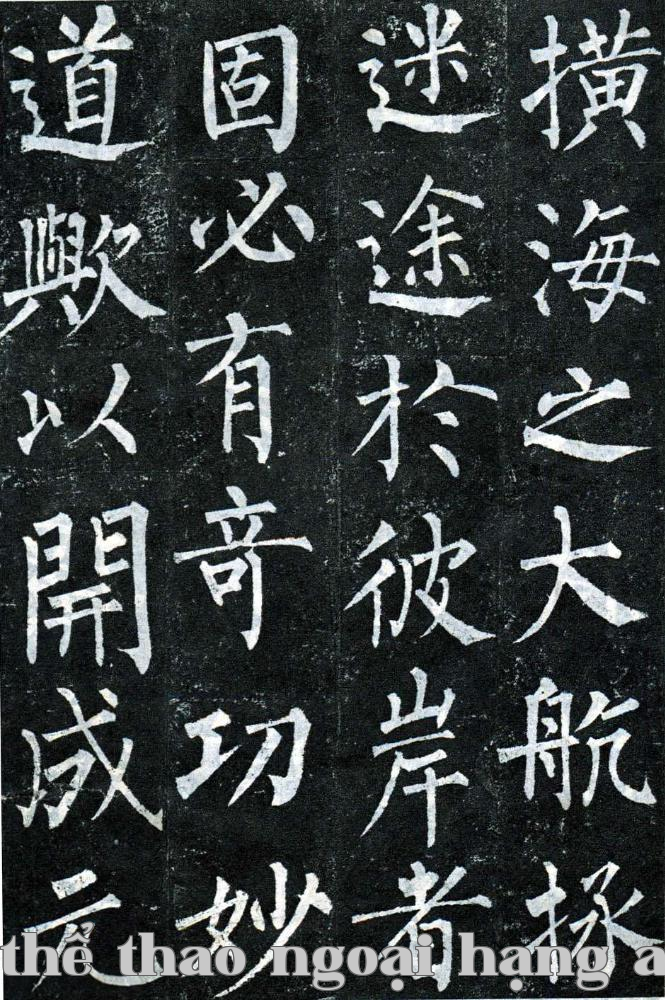 橫海之大航拯
迷途於彼岸者
固必有奇功妙
道歟以開成元
thể thao ngoại hạng a